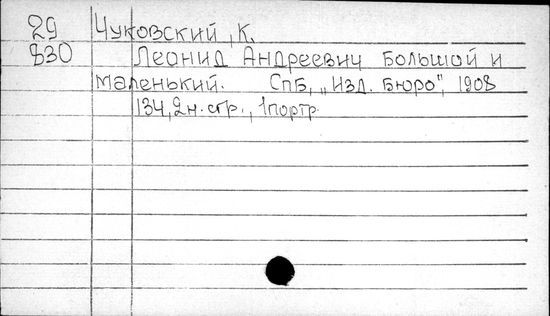 29 Чуковский, К.
830 Леонид Андреевич большой и
маленький. СПБ, „Изд. бюро", 1908
134, 2 н. стр., 1 портр.